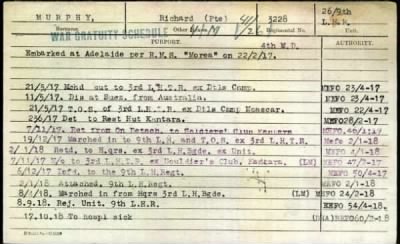 MURPHY, Richard (Pte) 3228 26/9th
WAR GRATUITY SCHEDULE L.H.R.
PURPORT. AUTHORITY.
4th M.D.
Embarked at Adelaide per R.M.S. "Morea" on 22/2/17.
21/5/17 Mchd out to 3rd L.H.T.R. ex Dtls Camp MEFO 23/4-17
11/5/17. Dis at Suez. from Australia. MEFO 23/4-17
21/5/17 T.O.S. of 3rd L.H.T.R. ex Dtls Camp Moascar. MEFO 22/4-17
Det to Rest Hut Kantara. MEFO
7/11/17. Det from On Detach. to Soldiers' Club Kantara
19/12/17 Marched in to 9th L.H. and T.O.S. ex 3rd L.H.T.R. Mefo 2/1-18
2/1/18 Retd. to Hqrs. ex 3rd L.H.Bdge. ex Unit. Mefo 2/1-18
7/11/17 M/o to 3rd L.H.T.R. ex Souldier's Club, (LM) MEFO 47/7-17
5/12/17 Tsfd. to the 9th L.H.Regt. MEFO 50/4-17
2/1/18 Attached, 9th L.H.Regt. Mefo 2/1-18
8/1/18 Marched in from Hqrs 3rd L.H.Bdge (LM) MEFO 24/2-18
8.9.18. Rej. Unit. 9th L.H.R. MEFO 54/4-18
17.10.18 To Hospl sick